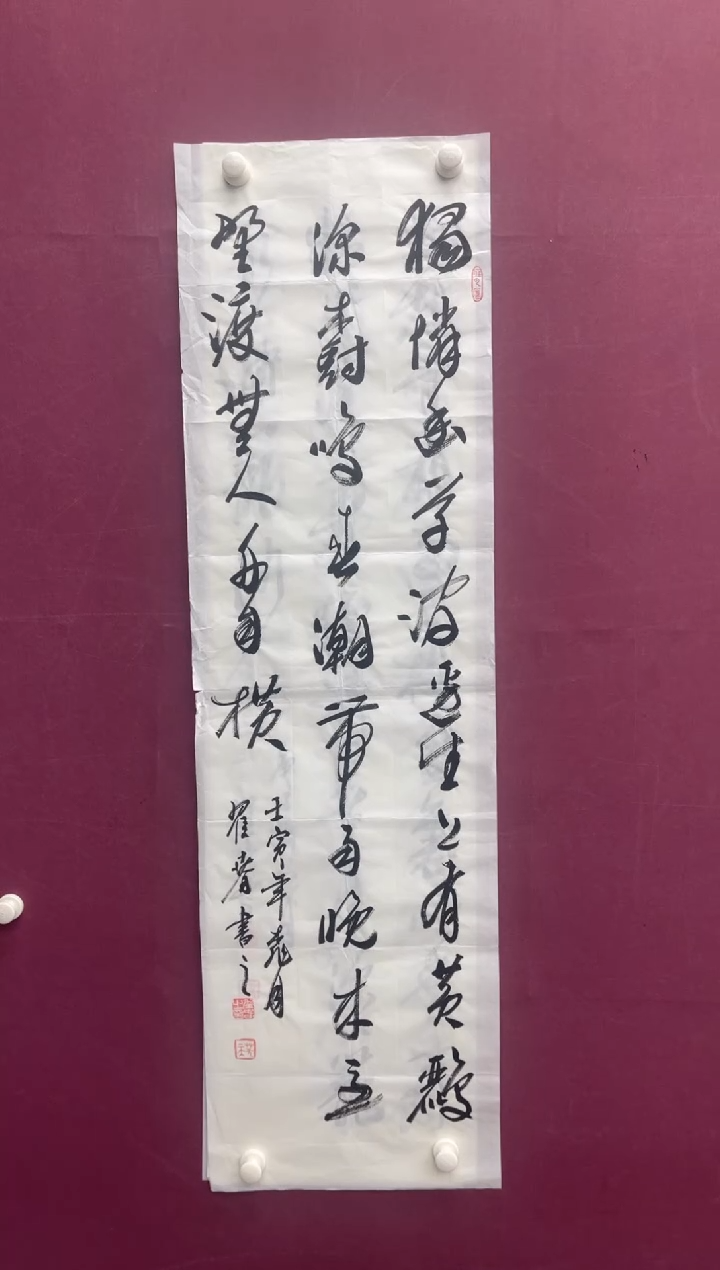 獨憐幽草澗邊生上有黃鸝
深樹鳴春潮帶雨晚來急
野渡無人舟自橫
壬寅年月
書之